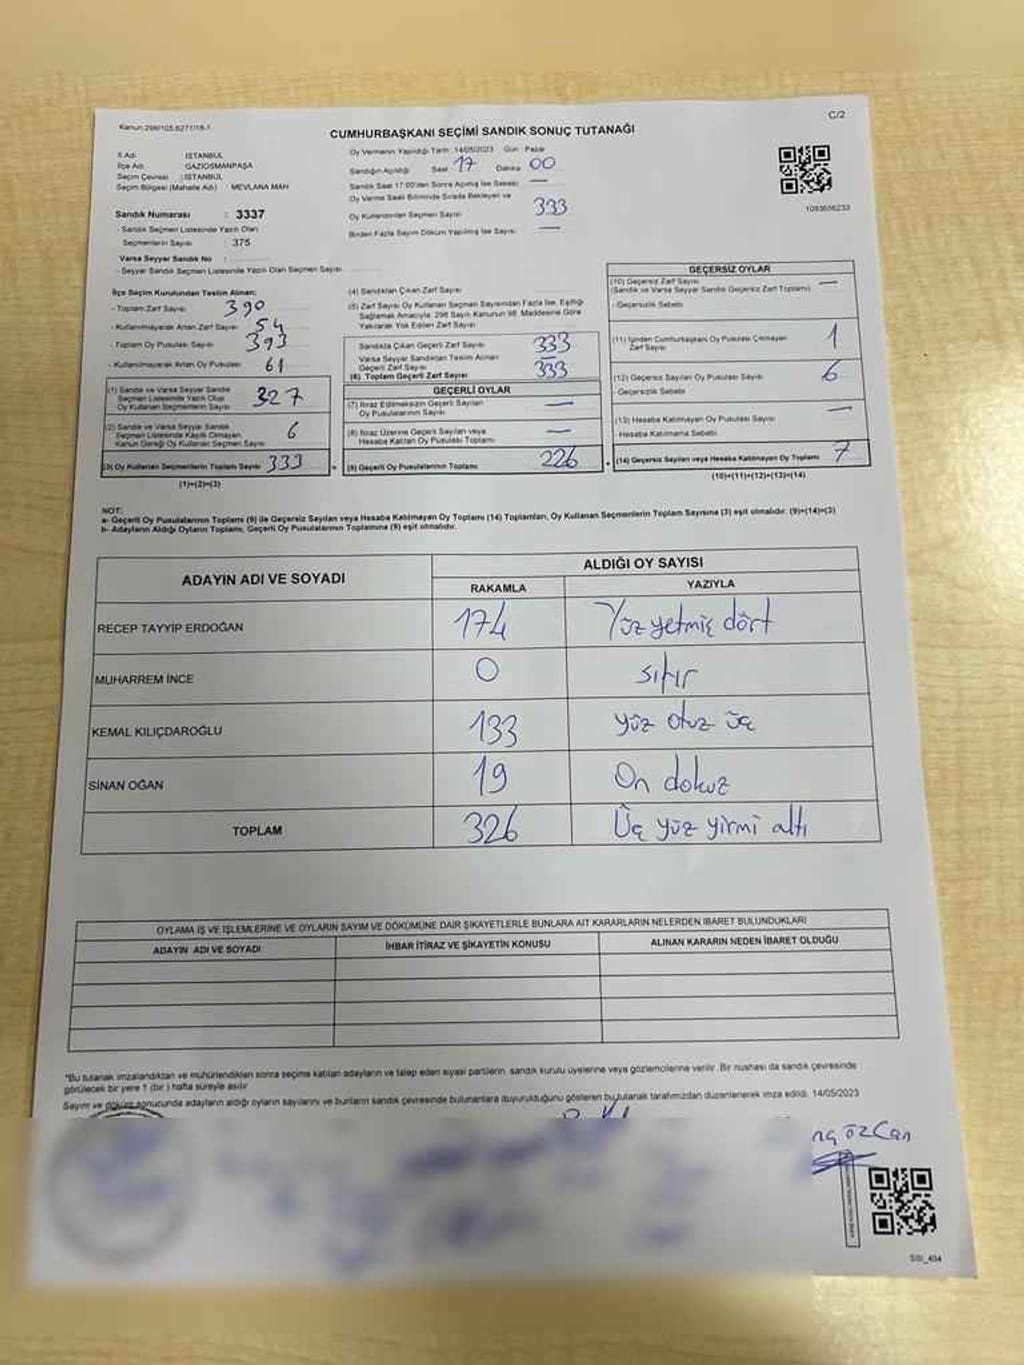 Kanun:298/105,6271/18-1
C/2
CUMHURBAŞKANI SEÇİMİ SANDIK SONUÇ TUTANAĞI
İl Adı : İSTANBUL
İlçe Adı : GAZİOSMANPAŞA
Seçim Çevresi : İSTANBUL
Seçim Bölgesi (Mahalle Adı) : MEVLANA MAH
Sandık Numarası : 3337
- Sandık Seçmen Listesinde Yazılı Olan
Seçmenlerin Sayısı : 375
Varsa Seyyar Sandık No :
- Seyyar Sandık Seçmen Listesinde Yazılı Olan Seçmen Sayısı
Oy Vermenin Yapıldığı Tarih :14/05/2023 Gün : Pazar
Sandığın Açıldığı Saat 17 Dakika 00
Sandık Saat 17:00'den Sonra Açılmış İse Sebebi —
Oy Verme Saati Bitiminde Sırada Bekleyen ve
Oy Kullandırılan Seçmen Sayısı 333
Birden Fazla Sayım Döküm Yapılmış İse Sayısı —
1093656233
İlçe Seçim Kurulundan Teslim Alınan;
- Toplam Zarf Sayısı 390
- Kullanılmayarak Artan Zarf Sayısı 54
- Toplam Oy Pusulası Sayısı 393
- Kullanılmayarak Artan Oy Pusulası 61
(1) Sandık ve Varsa Seyyar Sandık
Seçmen Listesinde Yazılı Olup
Oy Kullanan Seçmenlerin Sayısı 327
(2) Sandık ve Varsa Seyyar Sandık
Seçmen Listesinde Kayıtlı Olmayan,
Kanun Gereği Oy Kullanan Seçmen Sayısı 6
(3) Oy Kullanan Seçmenlerin Toplam Sayısı 333
(1)+(2)=(3)
(4) Sandıktan Çıkan Zarf Sayısı
(5) Zarf Sayısı Oy Kullanan Seçmen Sayısından Fazla İse, Eşitliği
Sağlamak Amacıyla; 298 Sayılı Kanunun 98. Maddesine Göre
Yakılarak Yok Edilen Zarf Sayısı
Sandıkta Çıkan Geçerli Zarf Sayısı 333
Varsa Seyyar Sandıktan Teslim Alınan
Geçerli Zarf Sayısı —
(6) Toplam Geçerli Zarf Sayısı 333
GEÇERLİ OYLAR
(7) İtiraz Edilmeksizin Geçerli Sayılan
Oy Pusulalarının Sayısı —
(8) İtiraz Üzerine Geçerli Sayılan veya
Hesaba Katılan Oy Pusulası Toplamı —
(9) Geçerli Oy Pusulalarının Toplamı 226
GEÇERSİZ OYLAR
(10) Geçersiz Zarf Sayısı —
(Sandık ve Varsa Seyyar Sandık Geçersiz Zarf Toplamı)
- Geçersizlik Sebebi
(11) İçinden Cumhurbaşkanı Oy Pusulası Çıkmayan
Zarf Sayısı 1
(12) Geçersiz Sayılan Oy Pusulası Sayısı 6
- Geçersizlik Sebebi
(13) Hesaba Katılmayan Oy Pusulası Sayısı —
- Hesaba Katılmama Sebebi
(14) Geçersiz Sayılan veya Hesaba Katılmayan Oy Toplamı 7
(10)+(11)+(12)+(13)=(14)
NOT:
a- Geçerli Oy Pusulalarının Toplamı (9) ile Geçersiz Sayılan veya Hesaba Katılmayan Oy Toplamı (14) Toplamları, Oy Kullanan Seçmenlerin Toplam Sayısına (3) eşit olmalıdır. (9)+(14)=(3)
b- Adayların Aldığı Oyların Toplamı, Geçerli Oy Pusulalarının Toplamına (9) eşit olmalıdır.
ADAYIN ADI VE SOYADI
ALDIĞI OY SAYISI
RAKAMLA YAZIYLA
RECEP TAYYİP ERDOĞAN 174 Yüz yetmiş dört
MUHARREM İNCE 0 sıfır
KEMAL KILIÇDAROĞLU 133 yüz otuz üç
SİNAN OĞAN 19 On dokuz
TOPLAM 326 Üç yüz yirmi altı
OYLAMA İŞ VE İŞLEMLERİNE VE OYLARIN SAYIM VE DÖKÜMÜNE DAİR ŞİKAYETLERLE BUNLARA AİT KARARLARIN NELERDEN İBARET BULUNDUKLARI
ADAYIN ADI VE SOYADI İHBAR İTİRAZ VE ŞİKAYETİN KONUSU ALINAN KARARIN NEDEN İBARET OLDUĞU
*Bu tutanak imzalandıktan ve mühürlendikten sonra seçime katılan adayların ve talep eden siyasi partilerin, sandık kurulu üyelerine veya gözlemcilerine verilir. Bir nushası da sandık çevresinde
görülecek bir yere 1 (bir ) hafta süreyle asılır.
Sayım ve döküm sonucunda adayların aldığı oyların sayılarını ve bunların sandık çevresinde bulunanlara duyurulduğunu gösteren bu tutanak tarafımızdan düzenlenerek imza edildi. 14/05/2023
özcan